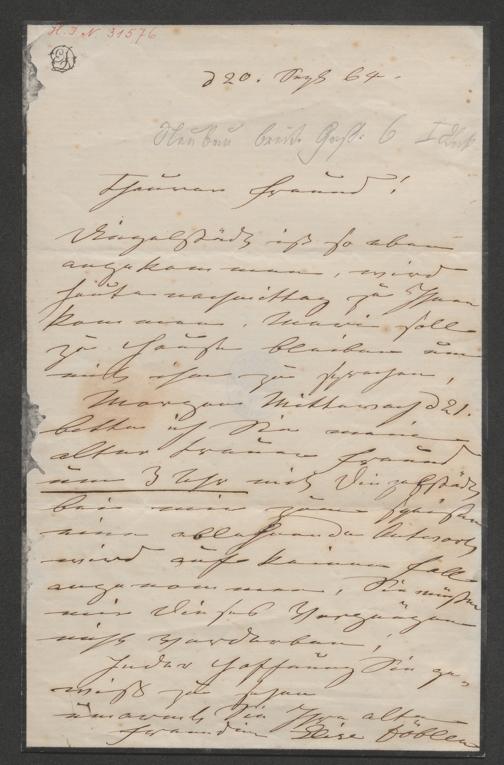 H.I.N. 31576
d 20. Sept 64.
Neubau breite Gasse 6 I Stock
Theurer Freund!
Dingelstädt ist so eben
angekommen, wird
heute nachmittag zu Ihnen
kommen. Marie soll
zu Hause bleiben um
mit ihm zu sprechen,
Morgen Mittwoch d 21.
bitte ich Sie mein
alter treuer Freund
um 3 Uhr mit Dingelstädt
bei mir zum speisen
eine ablehnende Antwort
wird auf keinen Fall
angenommen, Sie müssen
mir dieses Vergnügen
nicht verderben,
In der Hoffnung Sie ge-
wiß zu sehen
umarmt Sie Ihre alte
Freundin